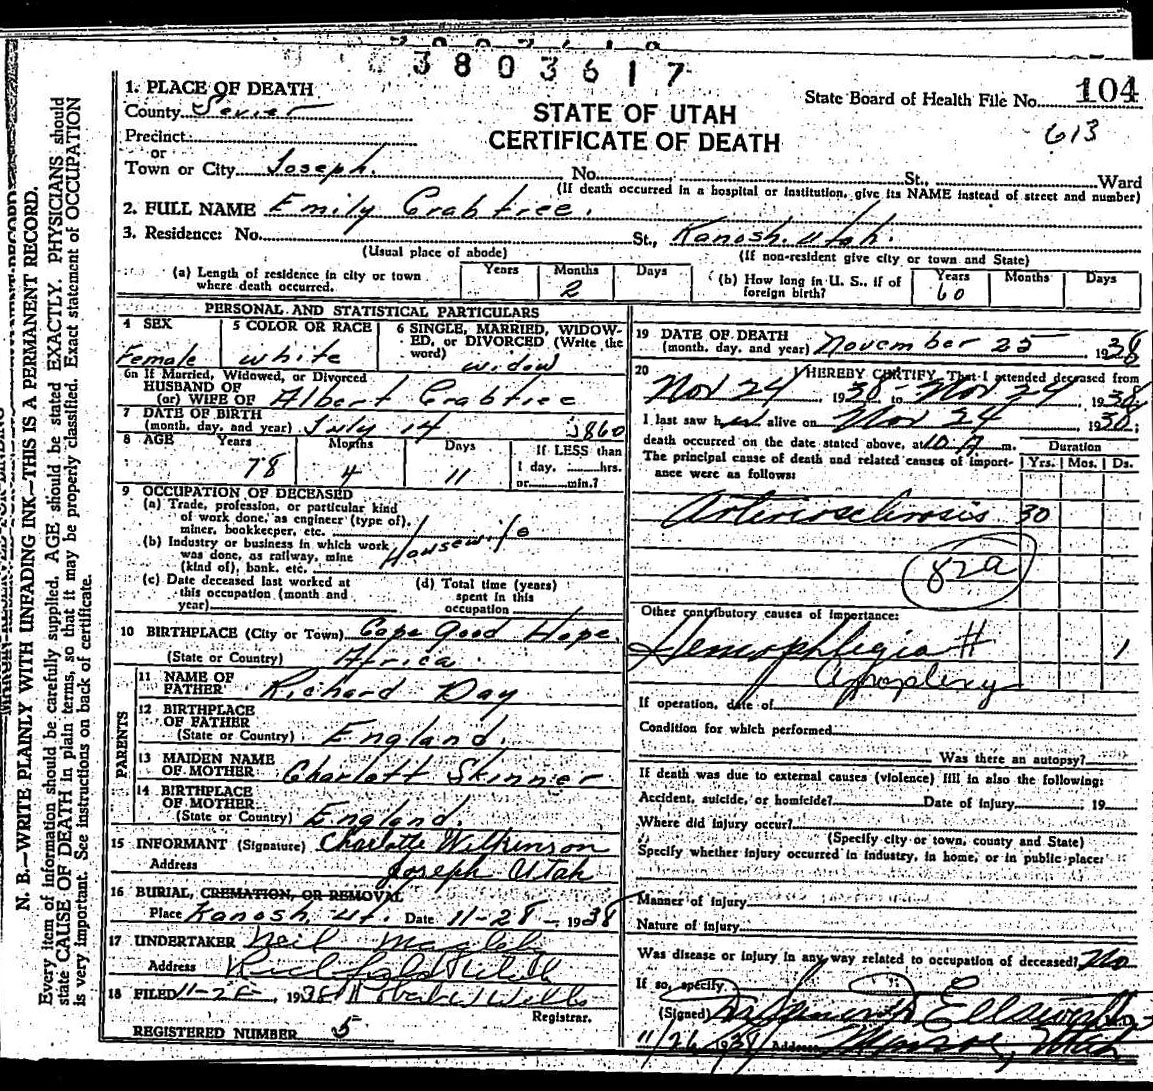 3803617
1. PLACE OF DEATH
County Sevier
Precinct
or
Town or City Joseph.
STATE OF UTAH
CERTIFICATE OF DEATH
State Board of Health File No. 104
613
No. St., Ward
(If death occurred in a hospital or institution, give its NAME instead of street and number)
2. FULL NAME Emily Crabtree.
3. Residence: No. St., Kanosh. Utah.
(Usual place of abode) (If non-resident give city or town and State)
(a) Length of residence in city or town where death occurred. Years Months 2 Days
(b) How long in U. S., if of foreign birth? Years 60 Months Days
PERSONAL AND STATISTICAL PARTICULARS
4 SEX Female
5 COLOR OR RACE white
6 SINGLE, MARRIED, WIDOWED, or DIVORCED (Write the word) widow
6a If Married, Widowed, or Divorced
HUSBAND OF
(or) WIFE OF Albert Crabtree
7 DATE OF BIRTH
(month, day, and year) July 14 1860
8 AGE Years 78 Months 4 Days 11 If LESS than
1 day, hrs.
or min.?
9 OCCUPATION OF DECEASED
(a) Trade, profession, or particular kind
of work done, as engineer (type of),
miner, bookkeeper, etc. Housewife
(b) Industry or business in which work
was done, as railway, mine
(kind of), bank, etc.
(c) Date deceased last worked at
this occupation (month and
year)
(d) Total time (years)
spent in this
occupation
10 BIRTHPLACE (City or Town) Cape Good Hope.
(State or Country) Africa
PARENTS
11 NAME OF
FATHER Richard Day
12 BIRTHPLACE
OF FATHER
(State or Country) England.
13 MAIDEN NAME
OF MOTHER Charlott Skinner
14 BIRTHPLACE
OF MOTHER
(State or Country) England.
15 INFORMANT (Signature) Charlotte Wilkinson
Address Joseph Utah
16 BURIAL, CREMATION, OR REMOVAL
Place Kanosh, Ut. Date 11-28-1938
17 UNDERTAKER Neil
Address Richfield Utah
18 FILED 11-28, 1938
Registrar.
REGISTERED NUMBER 5
19 DATE OF DEATH
(month, day, and year) November 25, 1938
20 I HEREBY CERTIFY, That I attended deceased from
Nov 24 1938 to Nov 24, 1938
I last saw her alive on Nov 24 1938;
death occurred on the date stated above, at 10 A. m.
Duration
The principal cause of death and related causes of importance were as follows: Yrs. Mos. Ds.
Arteriosclerosis 30
82a
Other contributory causes of importance:
Hemiphlegia 1
Apoplexy
If operation, date of
Condition for which performed
Was there an autopsy?
If death was due to external causes (violence) fill in also the following:
Accident, suicide, or homicide? Date of injury , 19
Where did injury occur?
(Specify city or town, county and State)
Specify whether injury occurred in industry, in home, or in public place:
Manner of injury
Nature of injury
Was disease or injury in any way related to occupation of deceased? No
If so, specify
(Signed) Ellsworth
11/26 1938 Address Monroe, Utah
N. B.—WRITE PLAINLY WITH UNFADING INK—THIS IS A PERMANENT RECORD.
Every item of information should be carefully supplied. AGE should be stated EXACTLY. PHYSICIANS should
state CAUSE OF DEATH in plain terms, so that it may be properly classified. Exact statement of OCCUPATION
is very important. See instructions on back of certificate.